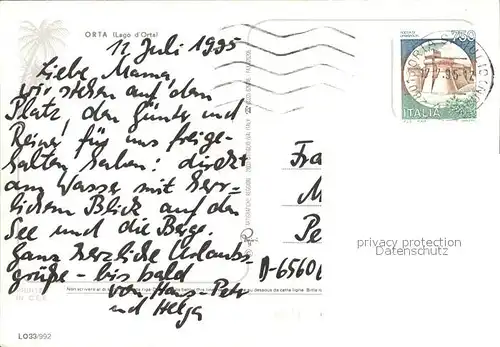 ORTA (Lago d'Orta)
11 Juli 1995
Liebe Mama,
wir stehen auf dem
Platz, den Günter und
Reiner für uns freige-
halten haben: direkt
am Wasser mit herr-
lichem Blick auf den
See und die Berge.
Ganz herzliche Urlaubs-
grüße - bis bald
von Hans-Peter
und Helga
750
ITALIA
Fra
M
Pe
D-6560
privacy protection
Datenschutz
LO33/992